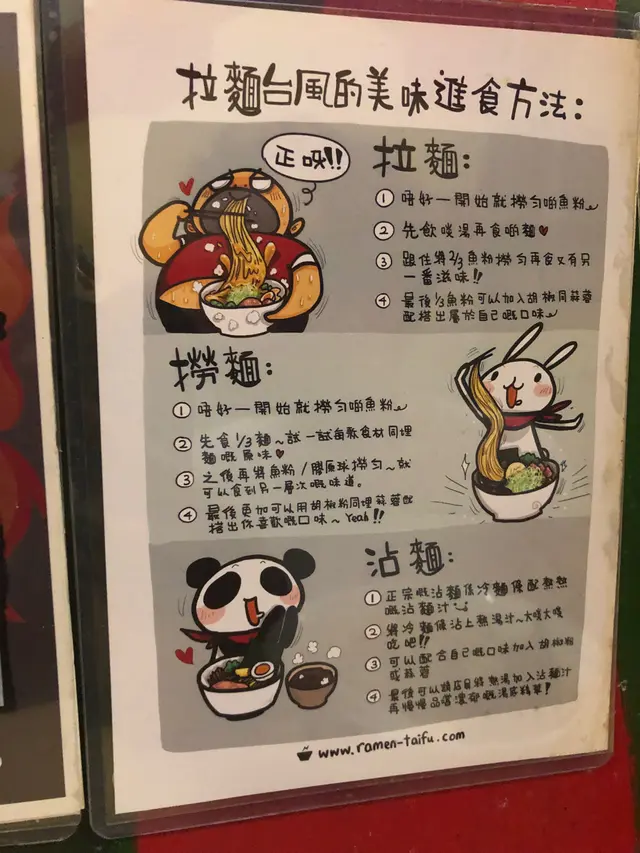 拉麵台風的美味進食方法:
正呀!!
拉麵:
① 唔好一開始就撈勻啲魚粉
② 先飲啖湯再食啲麵♥
③ 跟住將2/3魚粉撈勻再食又有另
一番滋味!!
④ 最後1/3魚粉可以加入胡椒同蒜蓉
配搭出屬於自己嘅口味~
撈麵:
① 唔好一開始就撈勻啲魚粉
② 先食1/3麵~試一試每款食材同埋
麵嘅原味♥
③ 之後再將魚粉/膠原球撈勻~就
可以食到另一層次嘅味道。
④ 最後更加可以用胡椒粉同埋蒜蓉配
搭出你喜歡嘅口味~Yeah!!
沾麵:
① 正宗嘅沾麵係冷麵條配熱熱
嘅沾麵汁
② 將冷麵條沾上熱湯汁~大啖大啖
吃吧!!
③ 可以配合自己嘅口味加入胡椒粉
或蒜蓉
④ 最後可以請店員將熱湯加入沾麵汁
再慢慢品嚐濃郁嘅湯底精華!
www.ramen-taifu.com